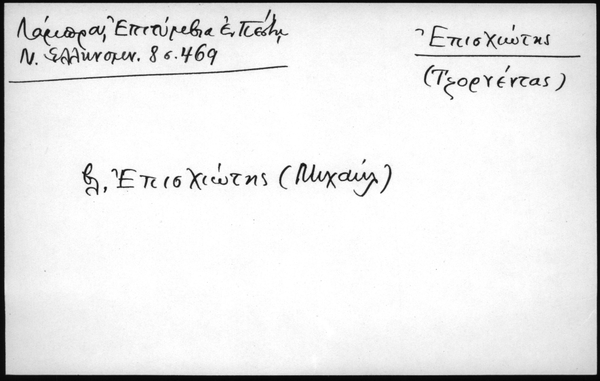 Λάμπρου, Ἐπιτύμβια ἐν Πέστῃ
Ν. Ἑλληνομν. 8 σ. 469
Ἐπισχιώτης
(Τζορνέντας)
βλ. Ἐπισχιώτης (Μιχαήλ)